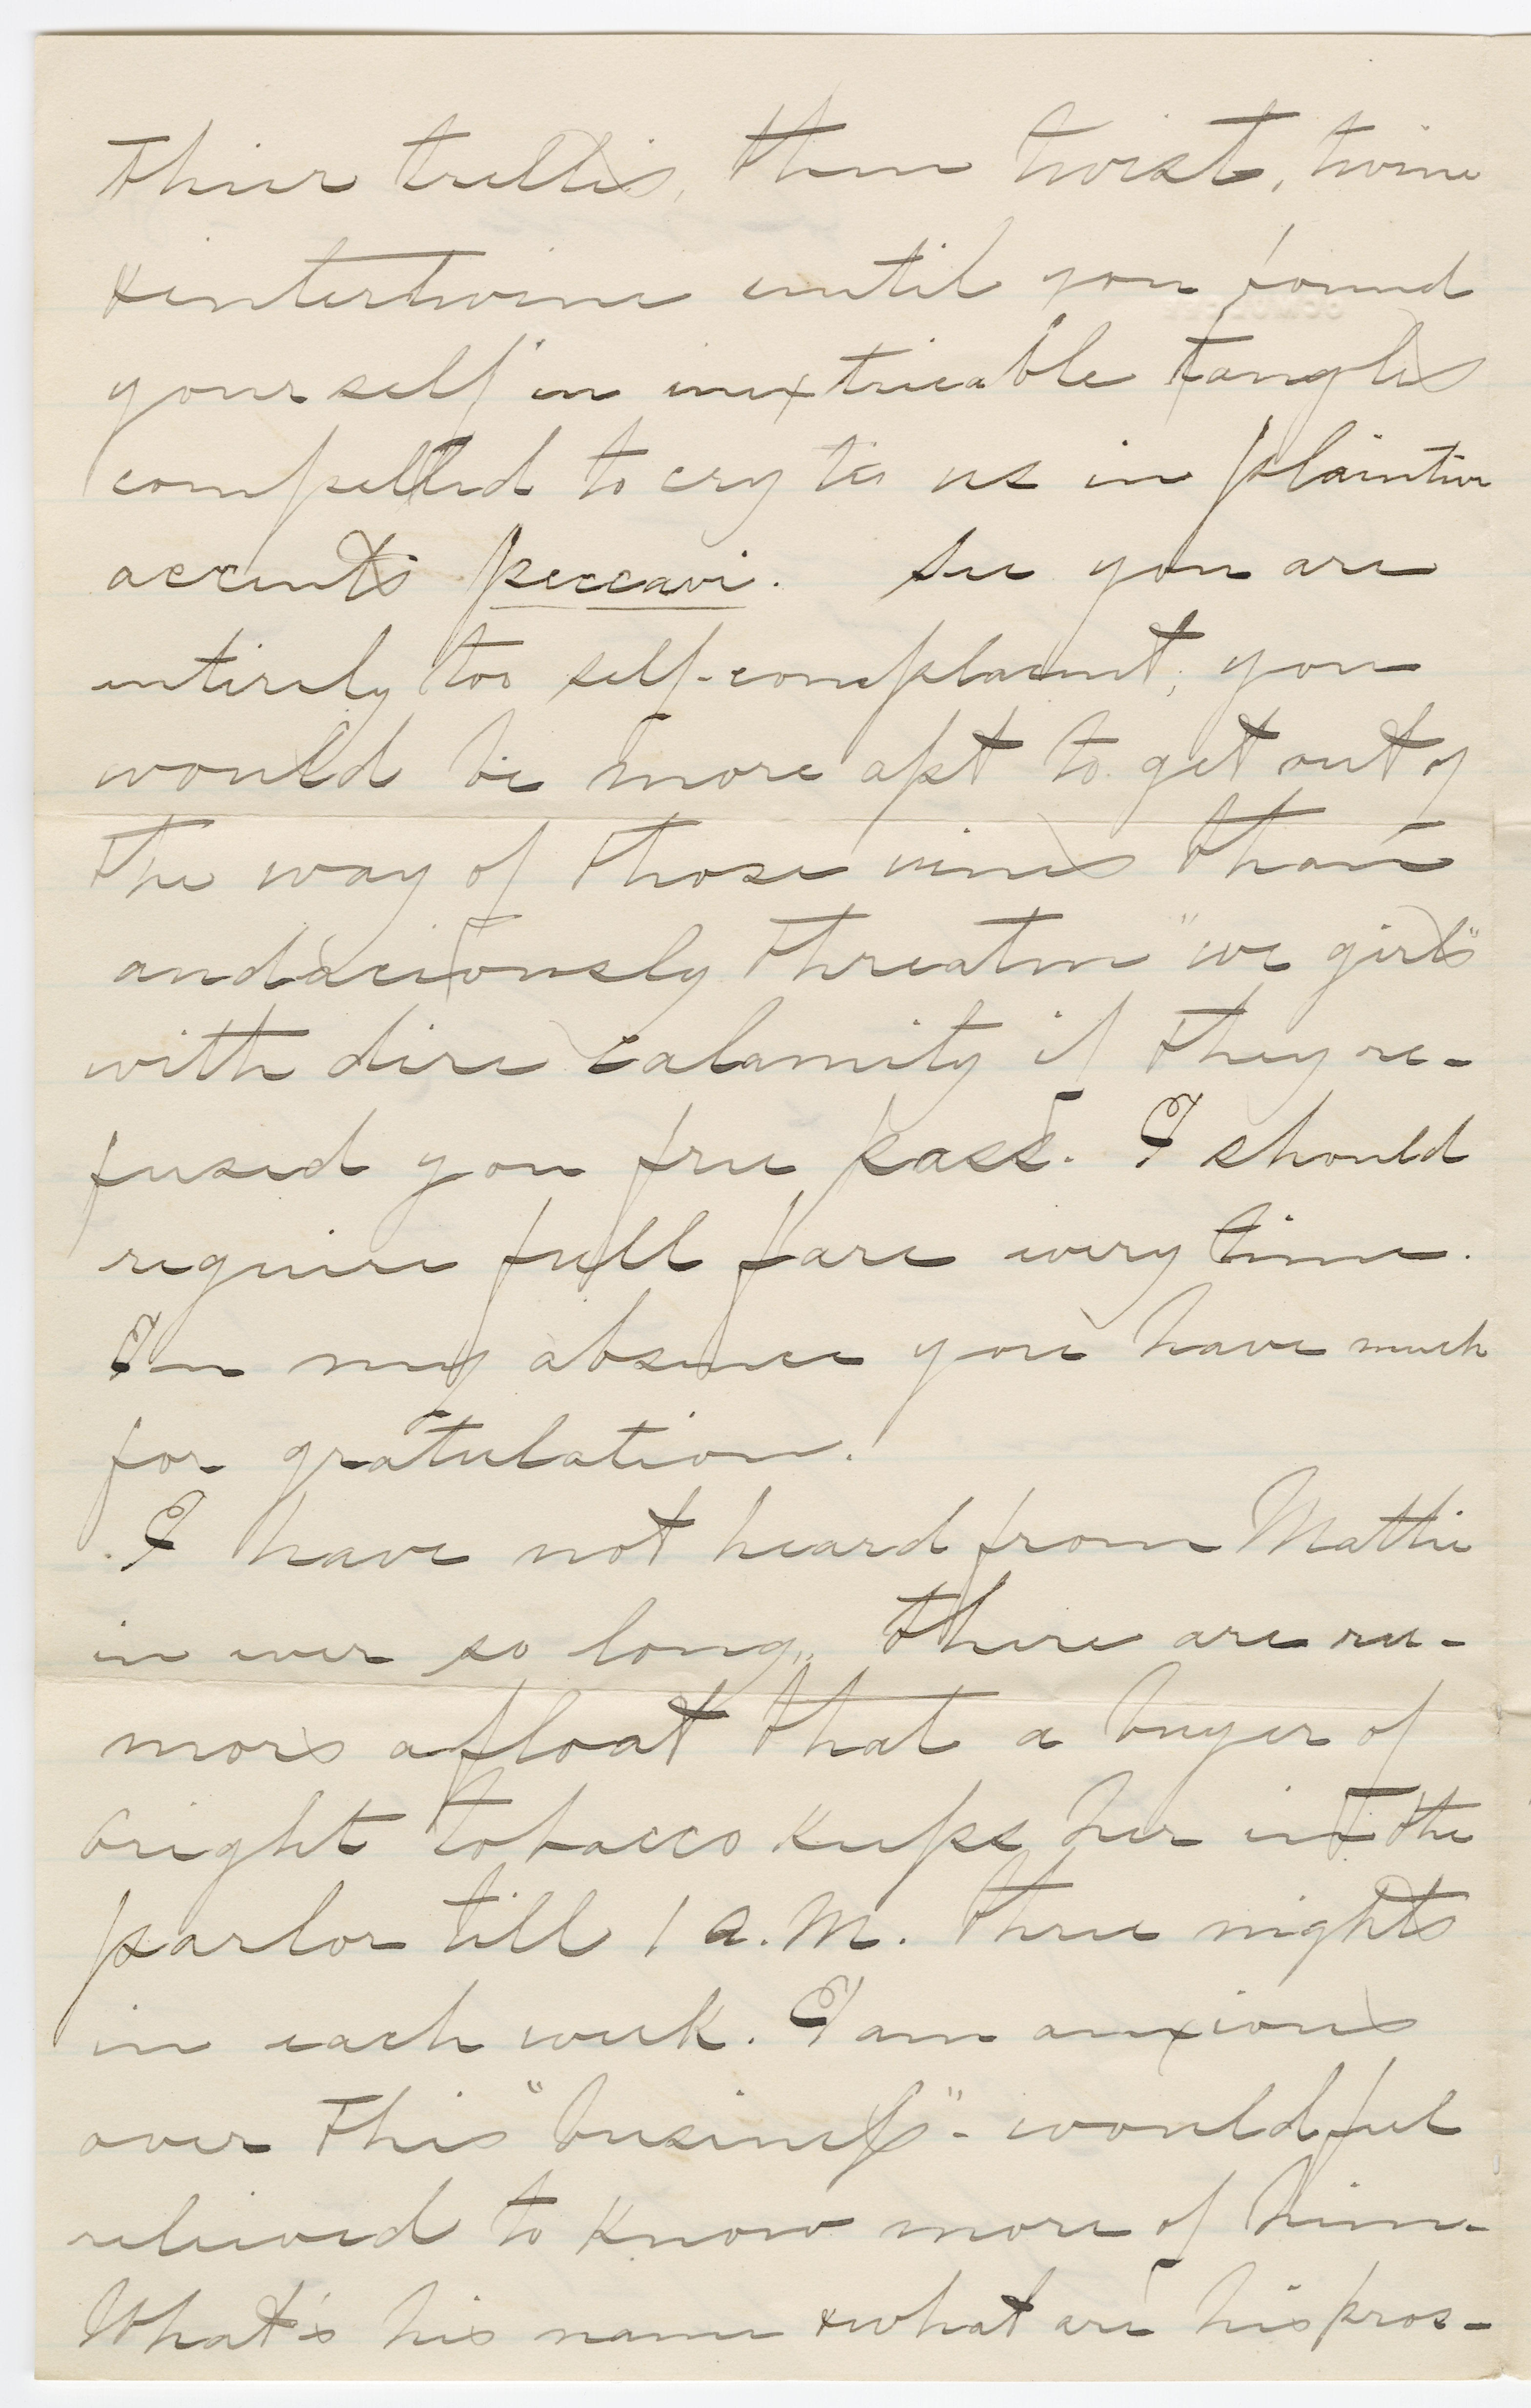 thier trellis, then twist, twine
& intertwine until you found
yourself in inextricable tangles
compelled to cry to us in plaintive
accents peccavi. See you are
entirely too self-complacent; you
would be more apt to get out of
the way of those vines than
audaciously threaten "we girls"
with dire calamity if they re-
fused you free pass. I should
require full fare every time.
In my absence you have much
for gratulation.
I have not heard from Mattie
in ever so long, there are ru-
mors afloat that a buyer of
bright tobacco keeps her in the
parlor till 1 a.M. three nights
in each week. I am anxious
over this "business" - would feel
relieved to know more of him.
What's his name & what are his pros-